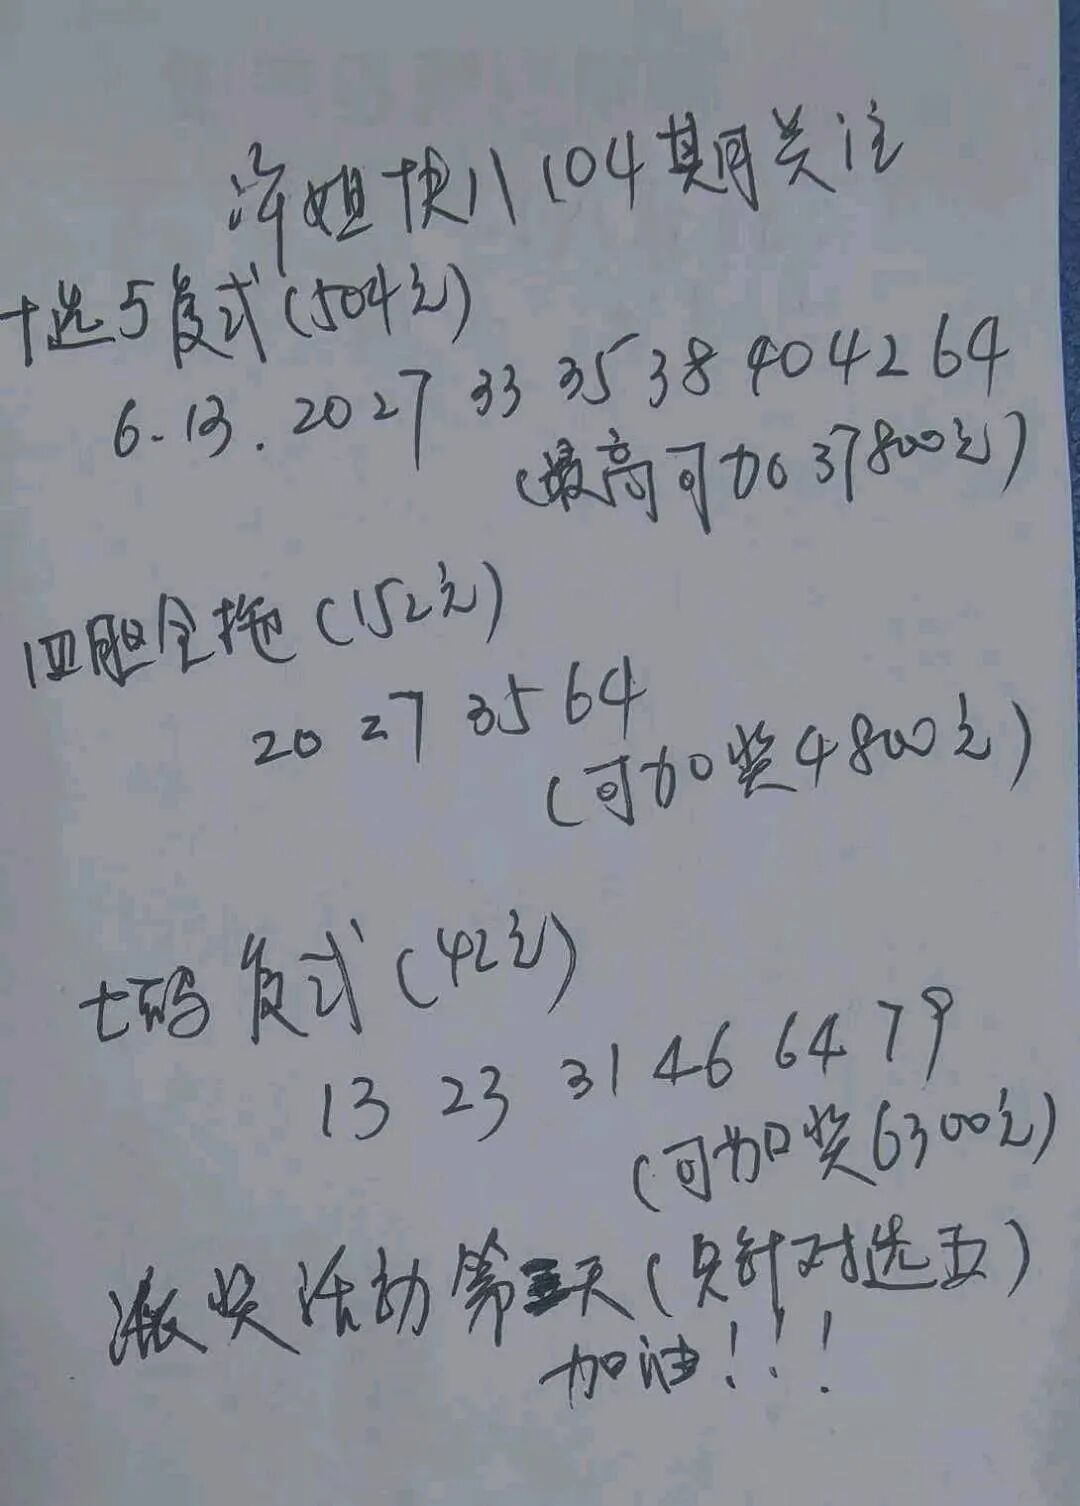 海姐快八104期关注
十选5复式(504元)
6-13.20 27 33 35 38 40 42 64
(最高可加37800元)
四胆全拖(152元)
20 27 35 64
(可加奖4800元)
七码复式(42元)
13 23 31 46 64 79
(可加奖6300元)
派奖活动第三天(只针对选五)
加油!!!